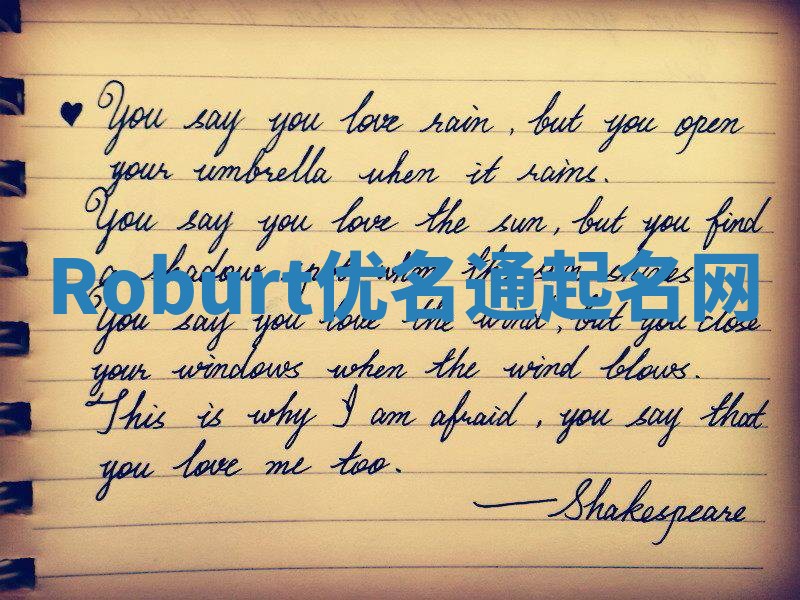 ♥ You say you love rain, but you open
your umbrella when it rains.
You say you love the sun, but you find
a shadow spot when the sun shines
Roburt优名通起名网
You say you love the wind, but you close
your windows when the wind blows.
This is why I am afraid, you say that
you love me too.
—Shakespeare